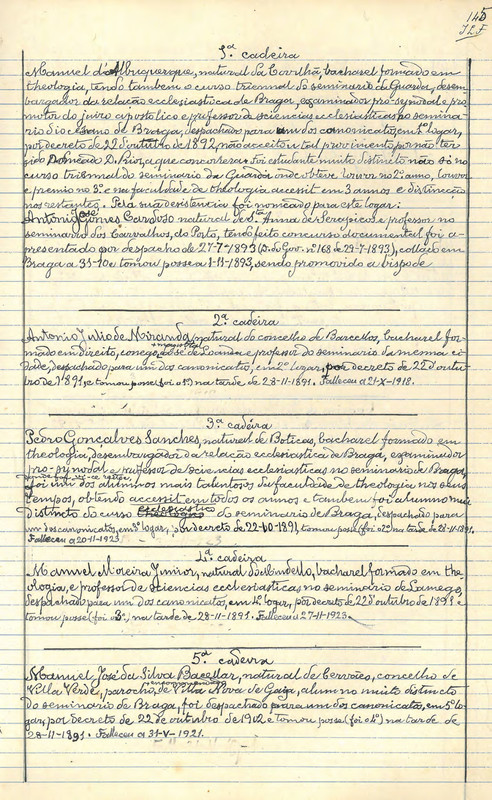 145
J.L.F.
1ª cadeira
Manuel d'Albuquerque, natural da Covilhã, bacharel formado em
theologia, tendo tambem o curso triennal do seminario da Guarda, desem-
bargador da relação ecclesiastica de Braga, examinador pro-synodal e pro-
motor do juizo apostolico e professor de sciencias ecclesiasticas no semina-
rio diocesano de Braga, despachado para um dos canonicatos, em 1º logar,
por decreto de 22 d'outubro de 1892, não acceitou tal provimento por não ter
sido nomeado D. Prior, a que concorrera. Foi estudante muito distincto não só no
curso triennal do seminario da Guarda onde obteve louvor no 2º anno, louvor
e premio no 3º e na faculdade de theologia accessit em 3 annos e distincção
nos restantes. Pela sua desistencia foi nomeado para este logar:
Antonio José Gomes Cardoso natural de Stª Anna de e professor no
seminario dos Carvalhos, do Porto, tendo feito concurso documental foi a-
presentado por despacho de 27-7-1893 (D. do Gov. nº 168 de 29-7-1893), collado em
Braga a 31-10 e tomou posse a 1-11-1893, sendo promovido a bispo de
2ª cadeira
Antonio Julio de Miranda, natural do concelho de Barcellos, bacharel for-
mado em direito, conego + magistral da sé de Loanda e professor do seminario da mesma ci-
dade, despachado para um dos canonicatos, em 2º logar, por decreto de 22 d'outu-
bro de 1891, e tomou posse (foi o 1º) na tarde de 28-11-1891. Falleceu a 21-X-1918.
3ª cadeira
Pedro Gonçalves Sanches, natural de Boticas, bacharel formado em
theologia, desembargador da relação ecclesiastica de Braga, examinador
pro-synodal e professor de sciencias ecclesiasticas no seminario de Braga,
foi um dos alumnos mais talentosos da faculdade de theologia nos seus
tempos, obtendo accessit em todos os annos e tambem foi alumno mui
distincto do curso theologico ecclesiastico do seminario de Braga, despachado para
um dos canonicatos, em 3º logar, por decreto de 22-10-1891, tomou posse (foi o 2º) na tarde de 28-11-1891.
Falleceu a 20-11-1923
4ª cadeira
Manuel Moreira Junior, natural do Mindello, bacharel formado em the-
ologia, e professor de sciencias ecclesiasticas no seminario de Lamego,
despachado para um dos canonicatos, em 4º logar, por decreto de 22 d'outubro de 1891 e
tomou posse (foi o 3º), na tarde de 28-11-1891. Falleceu a 27-11-1923.
5ª cadeira
Manuel José da Silva Bacellar, natural de Cervães, concelho de
Villa Verde, parocho encommendado de Villa Nova de Gaya, alumno muito distincto
do seminario de Braga, foi despachado para um dos canonicatos, em 5º lo-
gar, por decreto de 22 de outubro de 1902 e tomou posse (foi o 4º) na tarde de
28-11-1891. Falleceu a 31-V-1921.